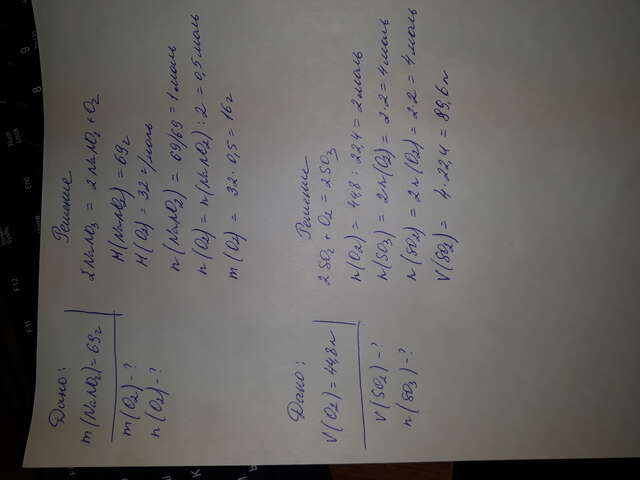 Дано:
m(NaNO2)=69г
m(O2)-?
n(O2)-?
Решение
2NaNO3 = 2NaNO2+O2
M(NaNO2)=69г
M(O2)= 32 г/моль
n(NaNO2) = 69/69 = 1моль
n(O2) = n(NaNO2):2 = 0,5моль
m(O2) = 32·0,5=16г
Дано:
V(O2)=44,8л
V(SO2)-?
n(SO3)-?
Решение
2SO2+O2=2SO3
n(O2)= 44,8:22,4=2моль
n(SO3) = 2n(O2)= 2·2=4моль
n(SO2) = 2n(O2)= 2·2=4моль
V(SO2)= 4·22,4=89,6л